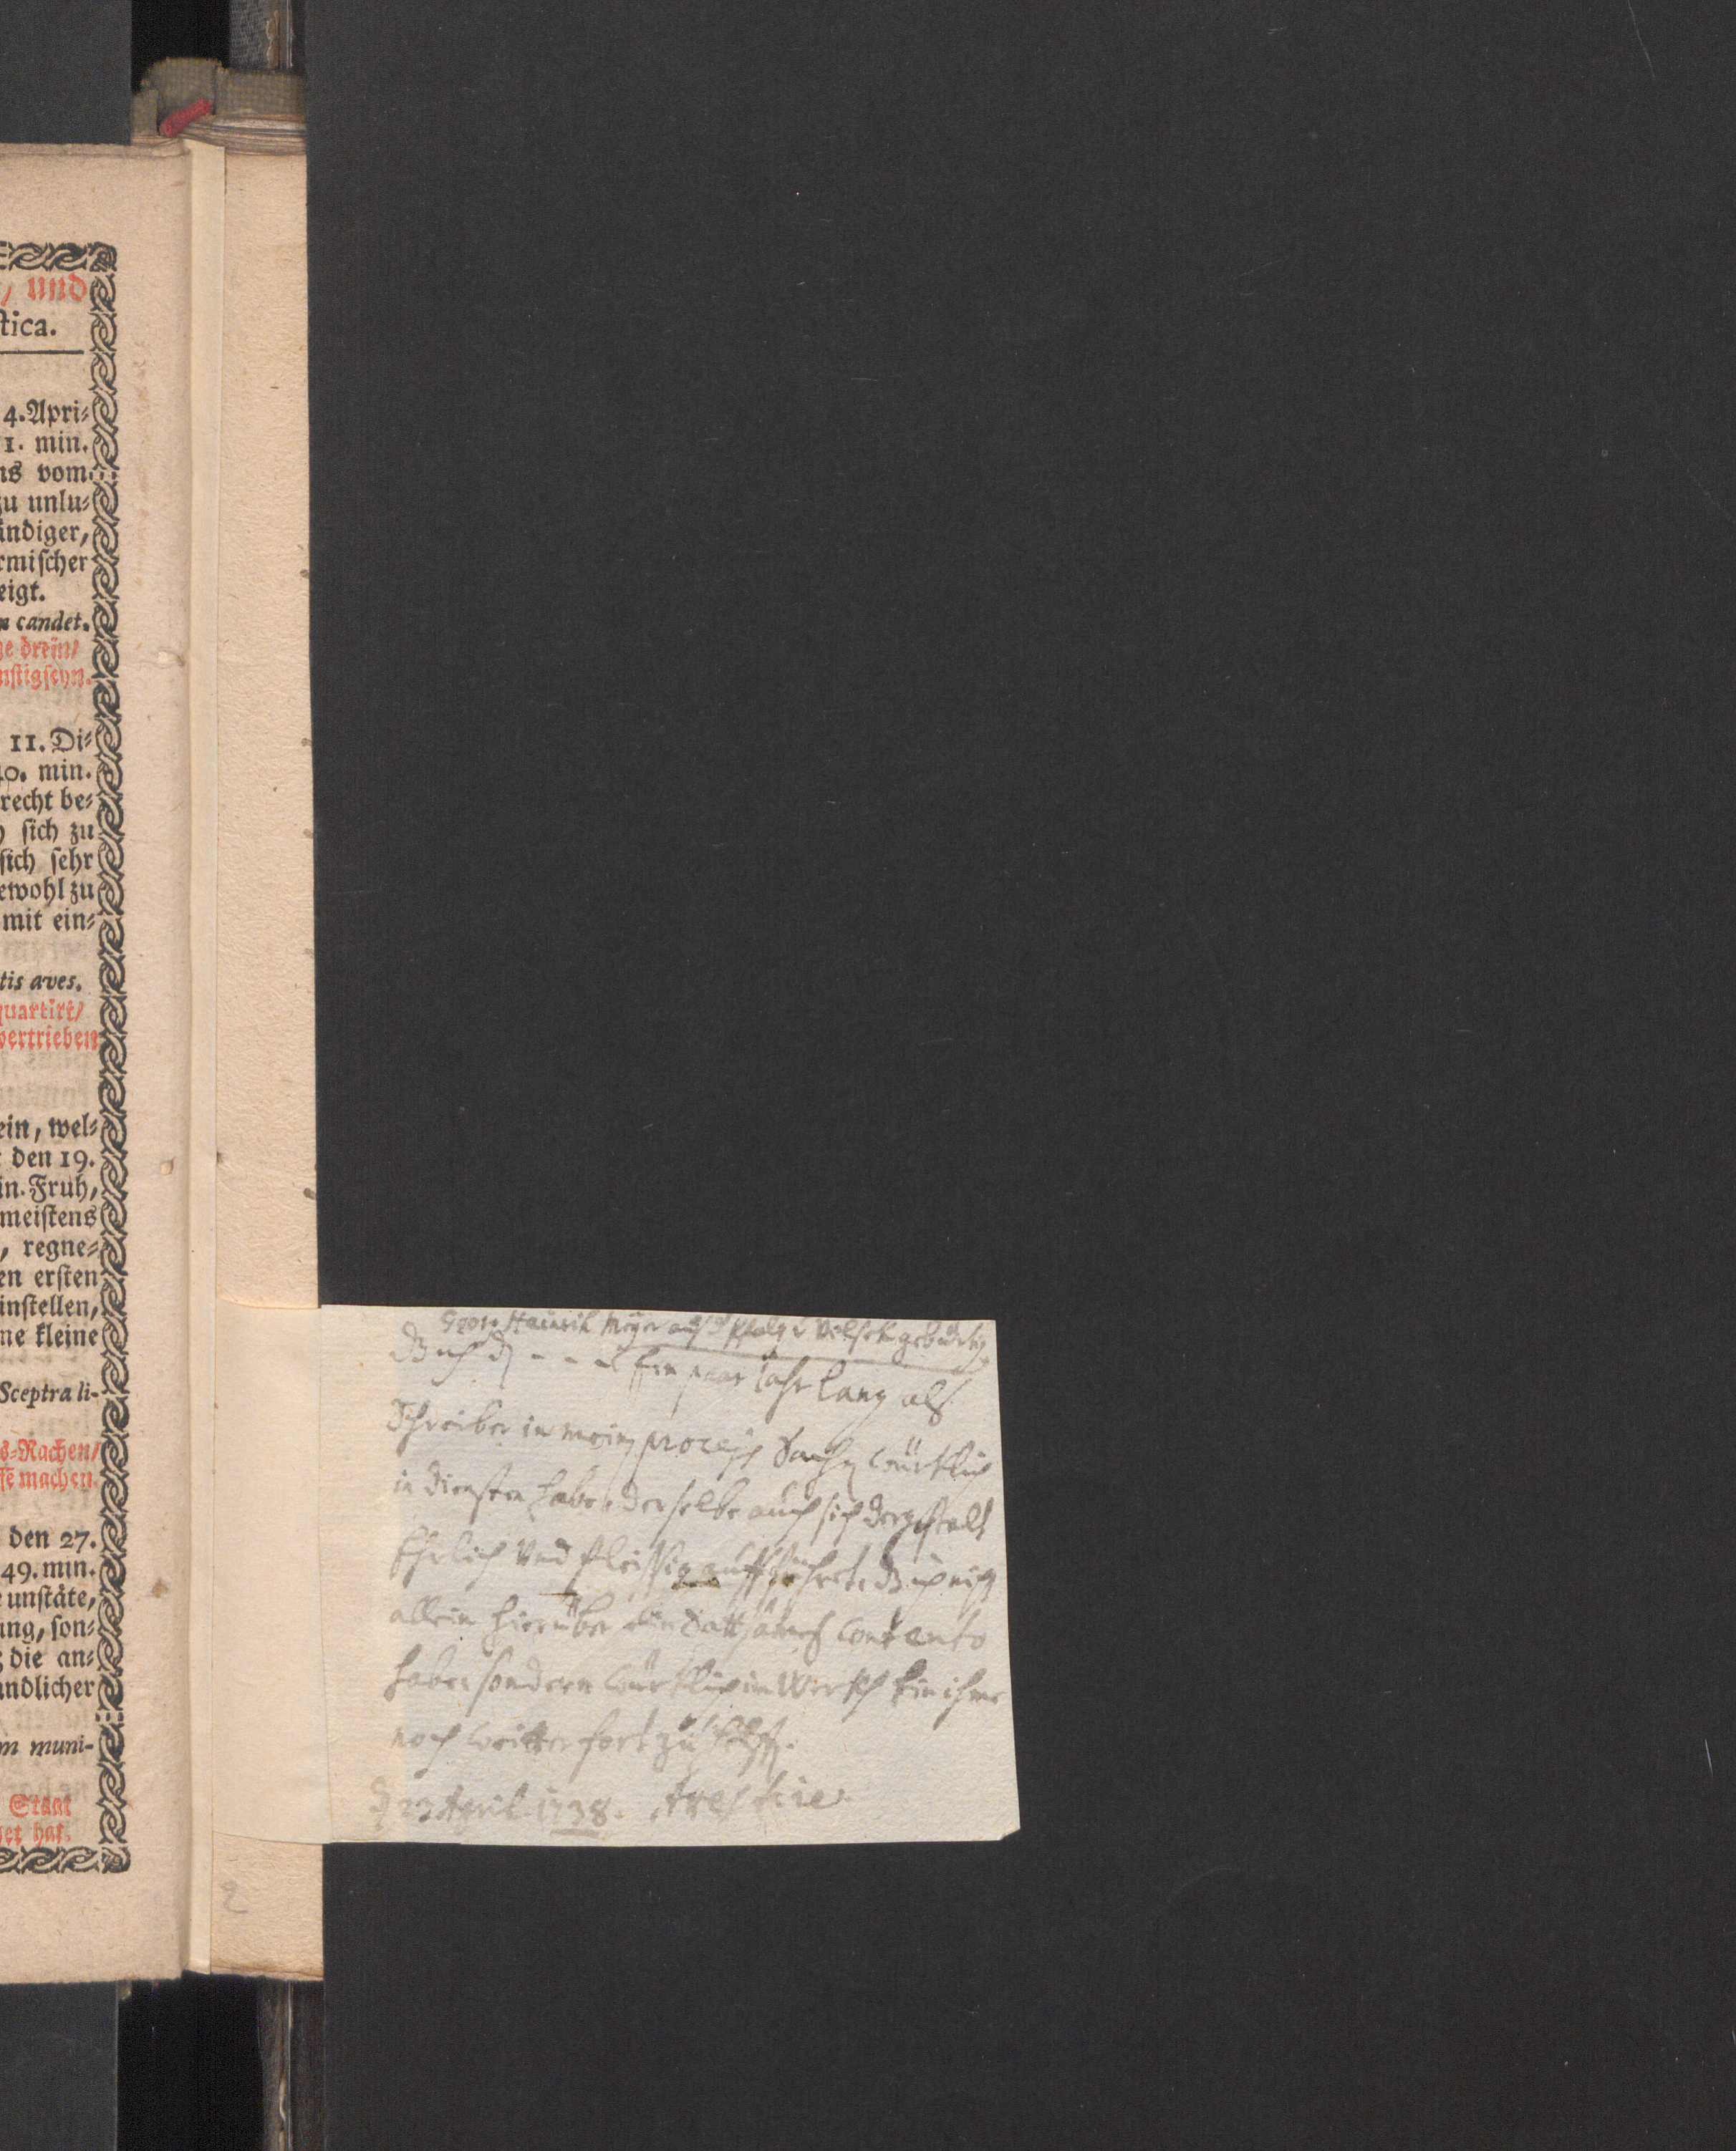 , und
ſtica.
4. Apri⸗
1. min.
ns vom
zu unlu⸗
ändiger,
rmiſcher
eigt.
candet.
ge drein/
nſtig ſeyn.
11. Di⸗
40. min.
recht be⸗
ſich zu
ſich ſehr
ewohl zu
mit ein⸗
tis aves.
quartirt/
vertrieben
ein, wel⸗
den 19.
in. Fruh,
meiſtens
, regne⸗
en erſten
inſtellen,
ne kleine
Sceptra li-
s⸗Rachen/
machen.
den 27.
49. min.
unſtäte,
ung, ſon⸗
die an⸗
ndlicher
m muni-
Staat
et hat.
Georg Hainrich Meyer auß d Pfalz v Vilseck gebürtig
Daß ich - - - Ein paar Jahr lang als
Schreiber in mein process Sachen würklich
in diensten habe, derselbe auch sich dergestalt
Ehrlich Und fleissig aufführet, daß ich nicht
allein hierüber ein satt sames contento
habe, sondern würklich im Werkh bin ihme
noch weitter fort zu
23 April 1738.
2